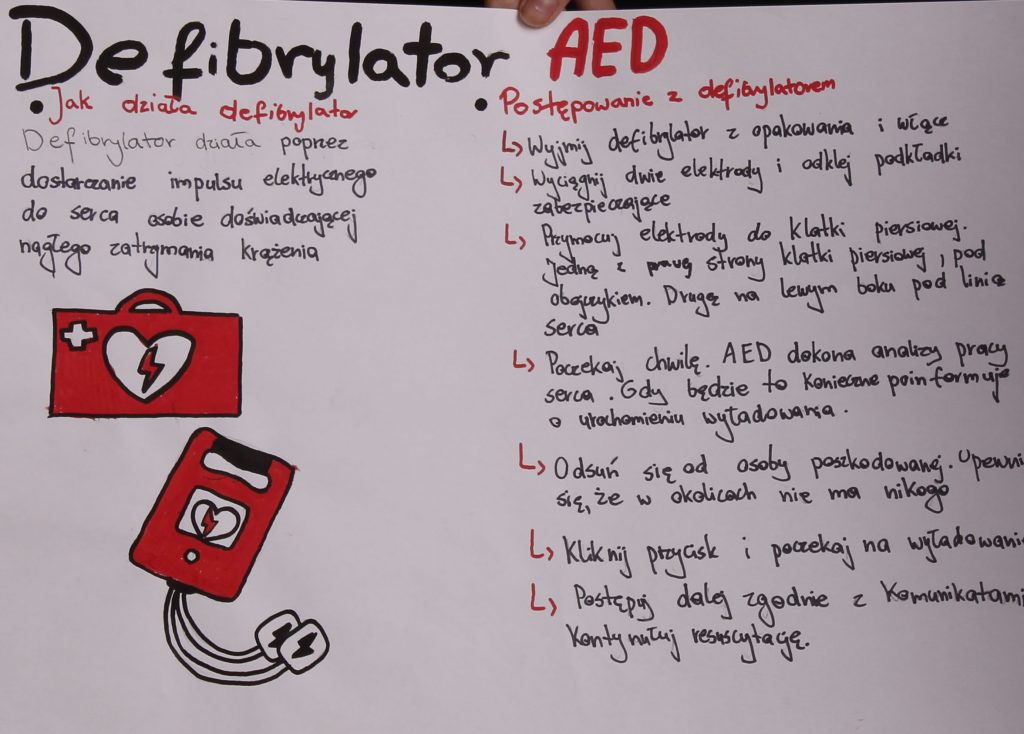 Defibrylator AED
• Jak działa defibrylator
Defibrylator działa poprzez
dostarczanie impulsu elektrycznego
do serca osobie doświadczającej
nagłego zatrzymania krążenia
• Postępowanie z defibrylatorem
↳ Wyjmij defibrylator z opakowania i włącz
↳ Wyciągnij dwie elektrody i odklej podkładki
zabezpieczające
↳ Przymocuj elektrody do klatki piersiowej.
Jedną z prawej strony klatki piersiowej, pod
obojczykiem. Drugą na lewym boku pod linią
serca
↳ Poczekaj chwilę. AED dokona analizy pracy
serca. Gdy będzie to konieczne poinformuje
o uruchomieniu wyładowania.
↳ Odsuń się od osoby poszkodowanej. Upewni
się, że w okolicach nie ma nikogo
↳ Kliknij przycisk i poczekaj na wyładowanie
↳ Postępuj dalej zgodnie z komunikatami
Kontynuuj resuscytację.